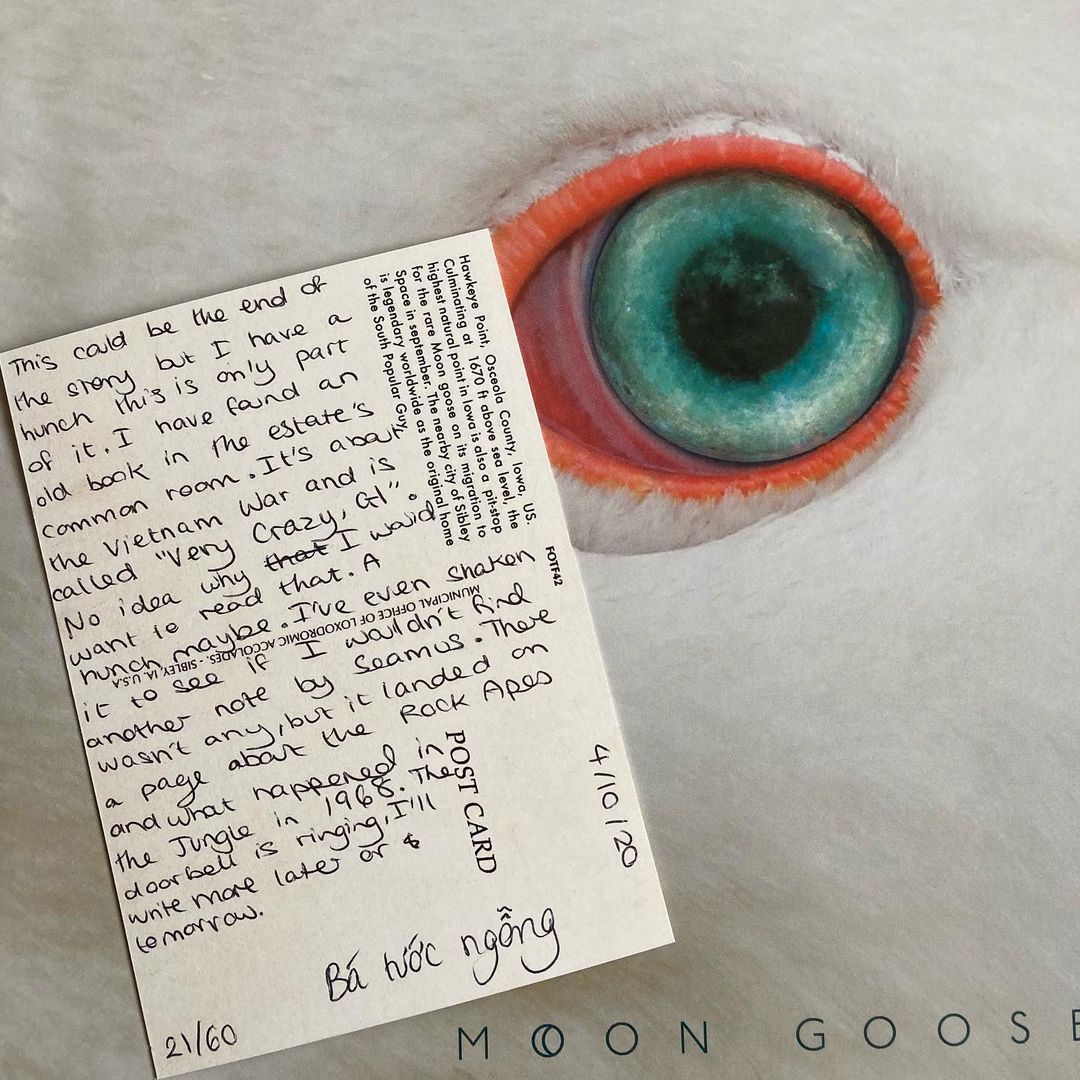 This could be the end of
the story but I have a
hunch this is only part
of it. I have found an
old book in the estate's
common room. It's about
the Vietnam War and is
called "Very Crazy, GI".
No idea why that I would
want to read that. A
hunch maybe. I've even shaken
it to see if I wouldn't find
another note by Seamus. There
wasn't any, but it landed on
a page about the Rock Apes
and what happened in
the Jungle in 1968. The
doorbell is ringing, I'll
write more later or
tomorrow.
Bá tước ngỗng
21/60
4/10/20
Hawkeye Point, Osceola County, Iowa, US.
Culminating at 1670 ft above sea level, the
highest natural point in Iowa is also a pit-stop
for the rare Moon goose on its migration to
Space in september. The nearby city of Sibley
is legendary worldwide as the original home
of the South Popular Guy.
FOTF42
MUNICIPAL OFFICE OF LOXODROMIC ACCOLADES. - SIBLEY, IA, U.S.A
POST CARD
MOON GOOSE